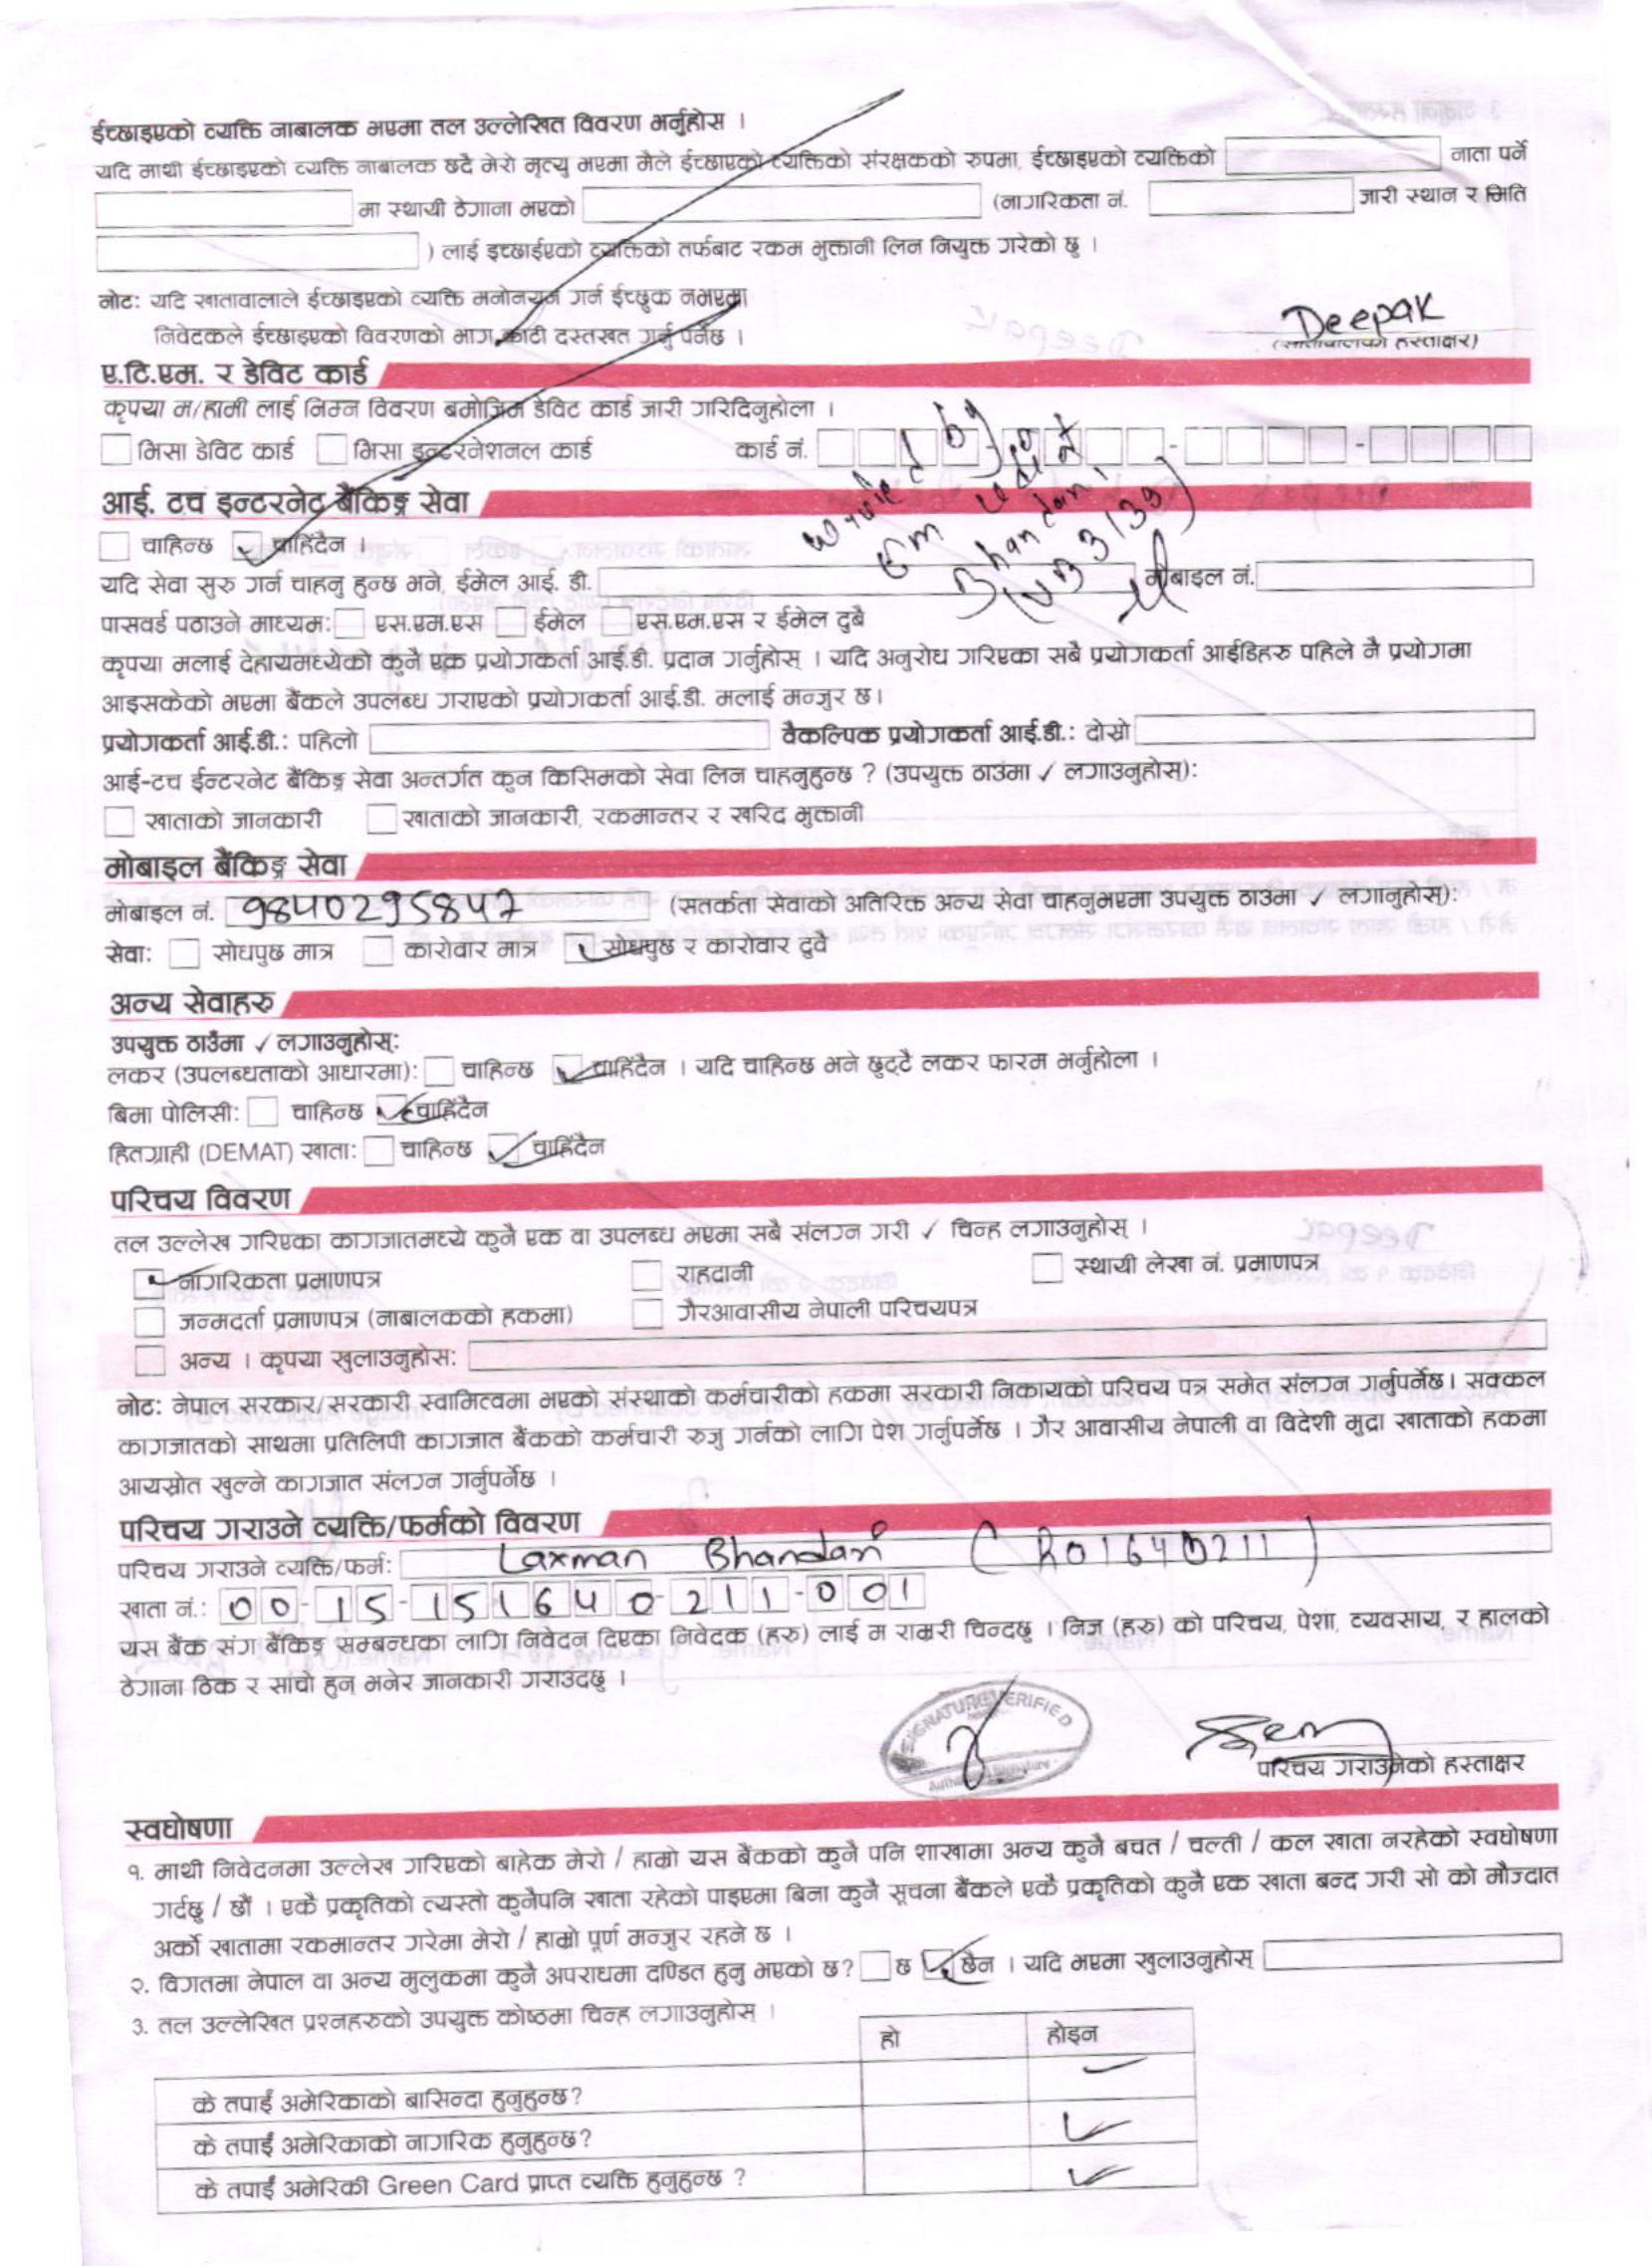 ईच्छाइएको व्यक्ति नाबालक भएमा तल उल्लेखित विवरण भर्नुहोस ।
यदि माथी ईच्छाइएको व्यक्ति नाबालक छदै मेरो मृत्यु भएमा मैले ईच्छाएको व्यक्तिको संरक्षकको रुपमा, ईच्छाइएको व्यक्तिको नाता पर्ने
मा स्थायी ठेगाना भएको (नागरिकता नं. जारी स्थान र मिति
) लाई इच्छाईएको व्यक्तिको तर्फबाट रकम भुक्तानी लिन नियुक्त गरेको छु ।
नोट: यदि खातावालाले ईच्छाइएको व्यक्ति मनोनयन गर्न ईच्छुक नभएमा
निवेदकले ईच्छाइएको विवरणको भाग काटी दस्तखत गर्नु पर्नेछ ।
Deepak
(खातावालाको हस्ताक्षर)
ए.टि.एम. र डेविट कार्ड
कृपया म/हामी लाई निम्न विवरण बमोजिम डेविट कार्ड जारी गरिदिनुहोला ।
भिसा डेविट कार्ड भिसा इन्टरनेशनल कार्ड कार्ड नं.
आई. टच इन्टरनेट बैंकिङ्ग सेवा
चाहिन्छ चाहिंदैन ।
यदि सेवा सुरु गर्न चाहनु हुन्छ भने, ईमेल आई. डी. मोबाइल नं.
पासवर्ड पठाउने माध्यम: एस.एम.एस ईमेल एस.एम.एस र ईमेल दुबै
कृपया मलाई देहायमध्येको कुनै एक प्रयोगकर्ता आई.डी. प्रदान गर्नुहोस् । यदि अनुरोध गरिएका सबै प्रयोगकर्ता आईडिहरु पहिले नै प्रयोगमा
आइसकेको भएमा बैंकले उपलब्ध गराएको प्रयोगकर्ता आई.डी. मलाई मन्जुर छ।
प्रयोगकर्ता आई.डी.: पहिलो वैकल्पिक प्रयोगकर्ता आई.डी.: दोस्रो
आई-टच ईन्टरनेट बैंकिङ्ग सेवा अन्तर्गत कुन किसिमको सेवा लिन चाहनुहुन्छ ? (उपयुक्त ठाउंमा ✓ लगाउनुहोस्):
खाताको जानकारी खाताको जानकारी, रकमान्तर र खरिद भुक्तानी
मोबाइल बैंकिङ्ग सेवा
मोबाइल नं. 9840295847 (सतर्कता सेवाको अतिरिक्त अन्य सेवा चाहनुभएमा उपयुक्त ठाउमा ✓ लगानुहोस्):
सेवा: सोधपुछ मात्र कारोवार मात्र सोधपुछ र कारोवार दुवै
अन्य सेवाहरु
उपयुक्त ठाउँमा ✓ लगाउनुहोस्:
लकर (उपलब्धताको आधारमा): चाहिन्छ चाहिंदैन । यदि चाहिन्छ भने छुट्टै लकर फारम भर्नुहोला ।
बिमा पोलिसी: चाहिन्छ चाहिंदैन
हितग्राही (DEMAT) खाता: चाहिन्छ चाहिंदैन
परिचय विवरण
तल उल्लेख गरिएका कागजातमध्ये कुनै एक वा उपलब्ध भएमा सबै संलग्न गरी ✓ चिन्ह लगाउनुहोस् ।
नागरिकता प्रमाणपत्र राहदानी स्थायी लेखा नं. प्रमाणपत्र
जन्मदर्ता प्रमाणपत्र (नाबालकको हकमा) गैरआवासीय नेपाली परिचयपत्र
अन्य । कृपया खुलाउनुहोस:
नोट: नेपाल सरकार/सरकारी स्वामित्वमा भएको संस्थाको कर्मचारीको हकमा सरकारी निकायको परिचय पत्र समेत संलग्न गर्नुपर्नेछ। सक्कल
कागजातको साथमा प्रतिलिपी कागजात बैंकको कर्मचारी रुजु गर्नको लागि पेश गर्नुपर्नेछ । गैर आवासीय नेपाली वा विदेशी मुद्रा खाताको हकमा
आयस्रोत खुल्ने कागजात संलग्न गर्नुपर्नेछ ।
परिचय गराउने व्यक्ति/फर्मको विवरण
परिचय गराउने व्यक्ति/फर्म: Laxman Bhandari (R01640211)
खाता नं.: 00-15-151640-211-001
यस बैंक संग बैंकिङ्ग सम्बन्धका लागि निवेदन दिएका निवेदक (हरु) लाई म राम्ररी चिन्दछु । निज (हरु) को परिचय, पेशा, व्यवसाय, र हालको
ठेगाना ठिक र सांचो हुन् भनेर जानकारी गराउंदछु ।
SIGNATURE VERIFIED
परिचय गराउनेको हस्ताक्षर
स्वघोषणा
१. माथी निवेदनमा उल्लेख गरिएको बाहेक मेरो / हाम्रो यस बैंकको कुनै पनि शाखामा अन्य कुनै बचत / चल्ती / कल खाता नरहेको स्वघोषणा
गर्दछु / छौं । एकै प्रकृतिको त्यस्तो कुनैपनि खाता रहेको पाइएमा बिना कुनै सूचना बैंकले एकै प्रकृतिको कुनै एक खाता बन्द गरी सो को मौज्दात
अर्को खातामा रकमान्तर गरेमा मेरो / हाम्रो पूर्ण मन्जुर रहने छ ।
२. विगतमा नेपाल वा अन्य मुलुकमा कुनै अपराधमा दण्डित हुनु भएको छ? छ छैन । यदि भएमा खुलाउनुहोस्
३. तल उल्लेखित प्रश्नहरुको उपयुक्त कोष्ठमा चिन्ह लगाउनुहोस् ।
हो होइन
के तपाईं अमेरिकाको बासिन्दा हुनुहुन्छ?
के तपाईं अमेरिकाको नागरिक हुनुहुन्छ?
के तपाईं अमेरिकी Green Card प्राप्त व्यक्ति हुनुहुन्छ ?